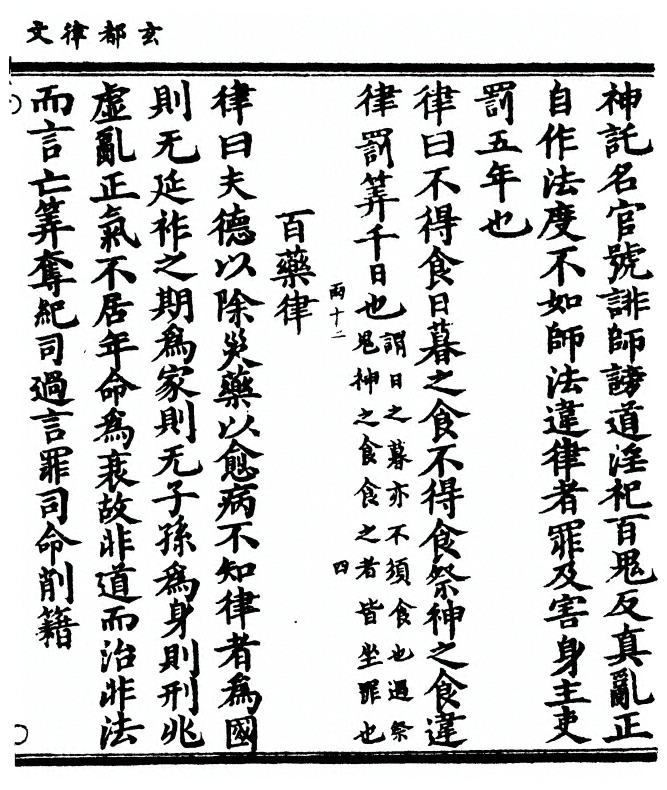 玄都律文
神託名官號誹師謗道淫祀百鬼反真亂正
自作法度不如師法違律者罪及害身主吏
罰五年也
律曰不得食日暮之食不得食祭神之食違
律罰筭千日也謂日之暮亦不須食也過祭
鬼神之食食之者皆坐罪也
兩十二
四
百藥律
律曰夫德以除災藥以愈病不知律者為國
則无延祚之期為家則无子孫為身則刑兆
虛亂正氣不居年命為衰故非道而治非法
而言亡筭奪紀司過言罪司命削籍